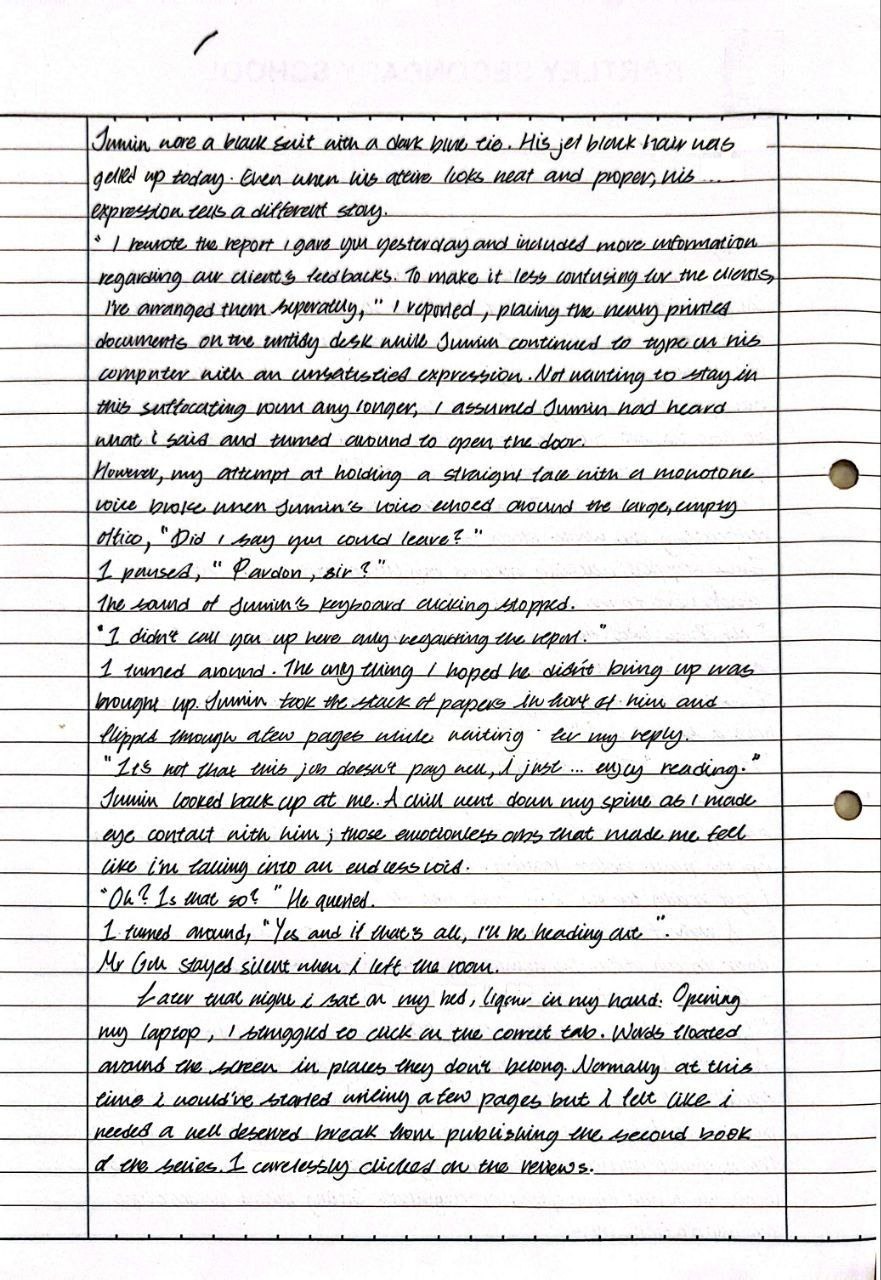 Jumin wore a black suit with a dark blue tie. His jet black hair was
gelled up today. Even when his attire looks neat and proper, his ...
expression tells a different story.
" I rewrote the report I gave you yesterday and included more information
regarding our client's feedbacks. To make it less confusing for the clients,
I've arranged them seperatly, " I reported, placing the newly printed
documents on the untidy desk while Jumin continued to type on his
computer with an unsatisfied expression. Not wanting to stay in
this suffocating room any longer, I assumed Jumin had heard
what i said and turned around to open the door.
However, my attempt at holding a straight face with a monotone
voice broke when Jumin's voice echoed around the large, empty
office, "Did I say you could leave? "
I paused, " Pardon, sir? "
The sound of Jumin's keyboard clicking stopped.
"I didn't call you up here only regarding the report. "
I turned around. The only thing I hoped he didn't bring up was
brought up. Jumin took the stack of papers in front of him and
flipped through a few pages while waiting for my reply.
"It's not that this job doesn't pay well, i just ... enjoy reading. "
Jumin looked back up at me. A chill went down my spine as I made
eye contact with him ; those emotionless orbs that made me feel
like i'm falling into an endless void.
"Oh? Is that so? " He queried.
I turned around, "Yes and if that's all, I'll be heading out ".
Mr Goh stayed silent when i left the room.
Later that night i sat on my bed, liqour in my hand. Opening
my laptop, I struggled to click on the correct tab. Words floated
around the screen in places they don't belong. Normally at this
time i would've started writing a few pages but i felt like i
needed a well deserved break from publishing the second book
of the series. I carelessly clicked on the reviews.